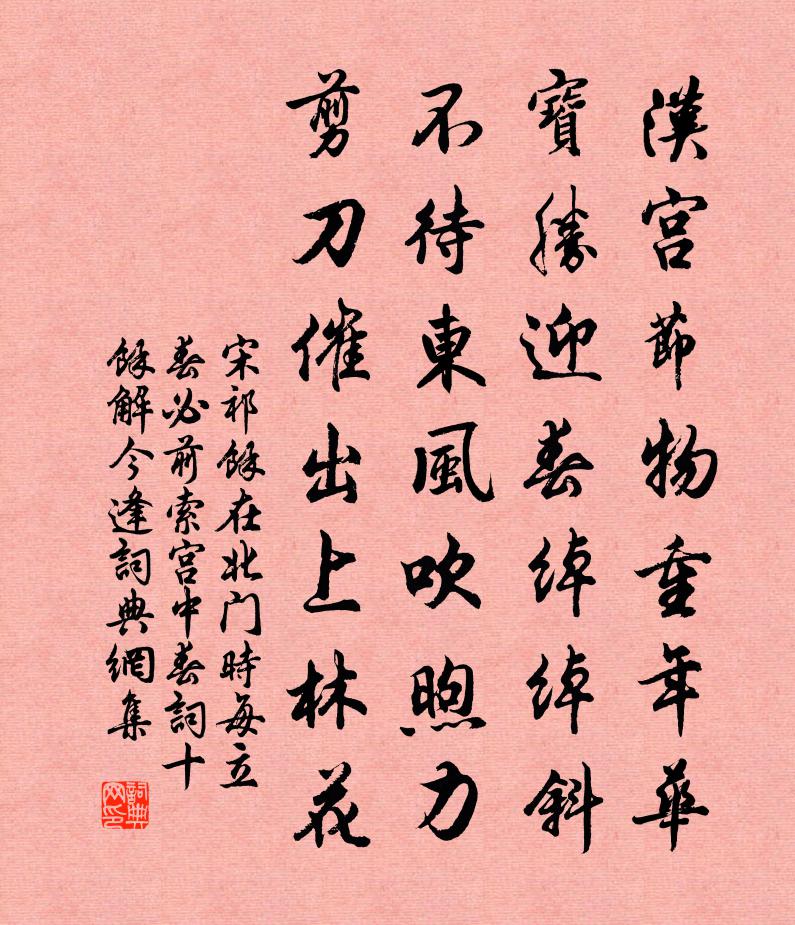 漢宮節物重年華
寶勝迎春綽綽斜
不待東風吹煦力
剪刀催出上林花
宋祁餘在北門時每立
春必前索宮中春詞十
餘解今逢詞典網集
詞典
网印